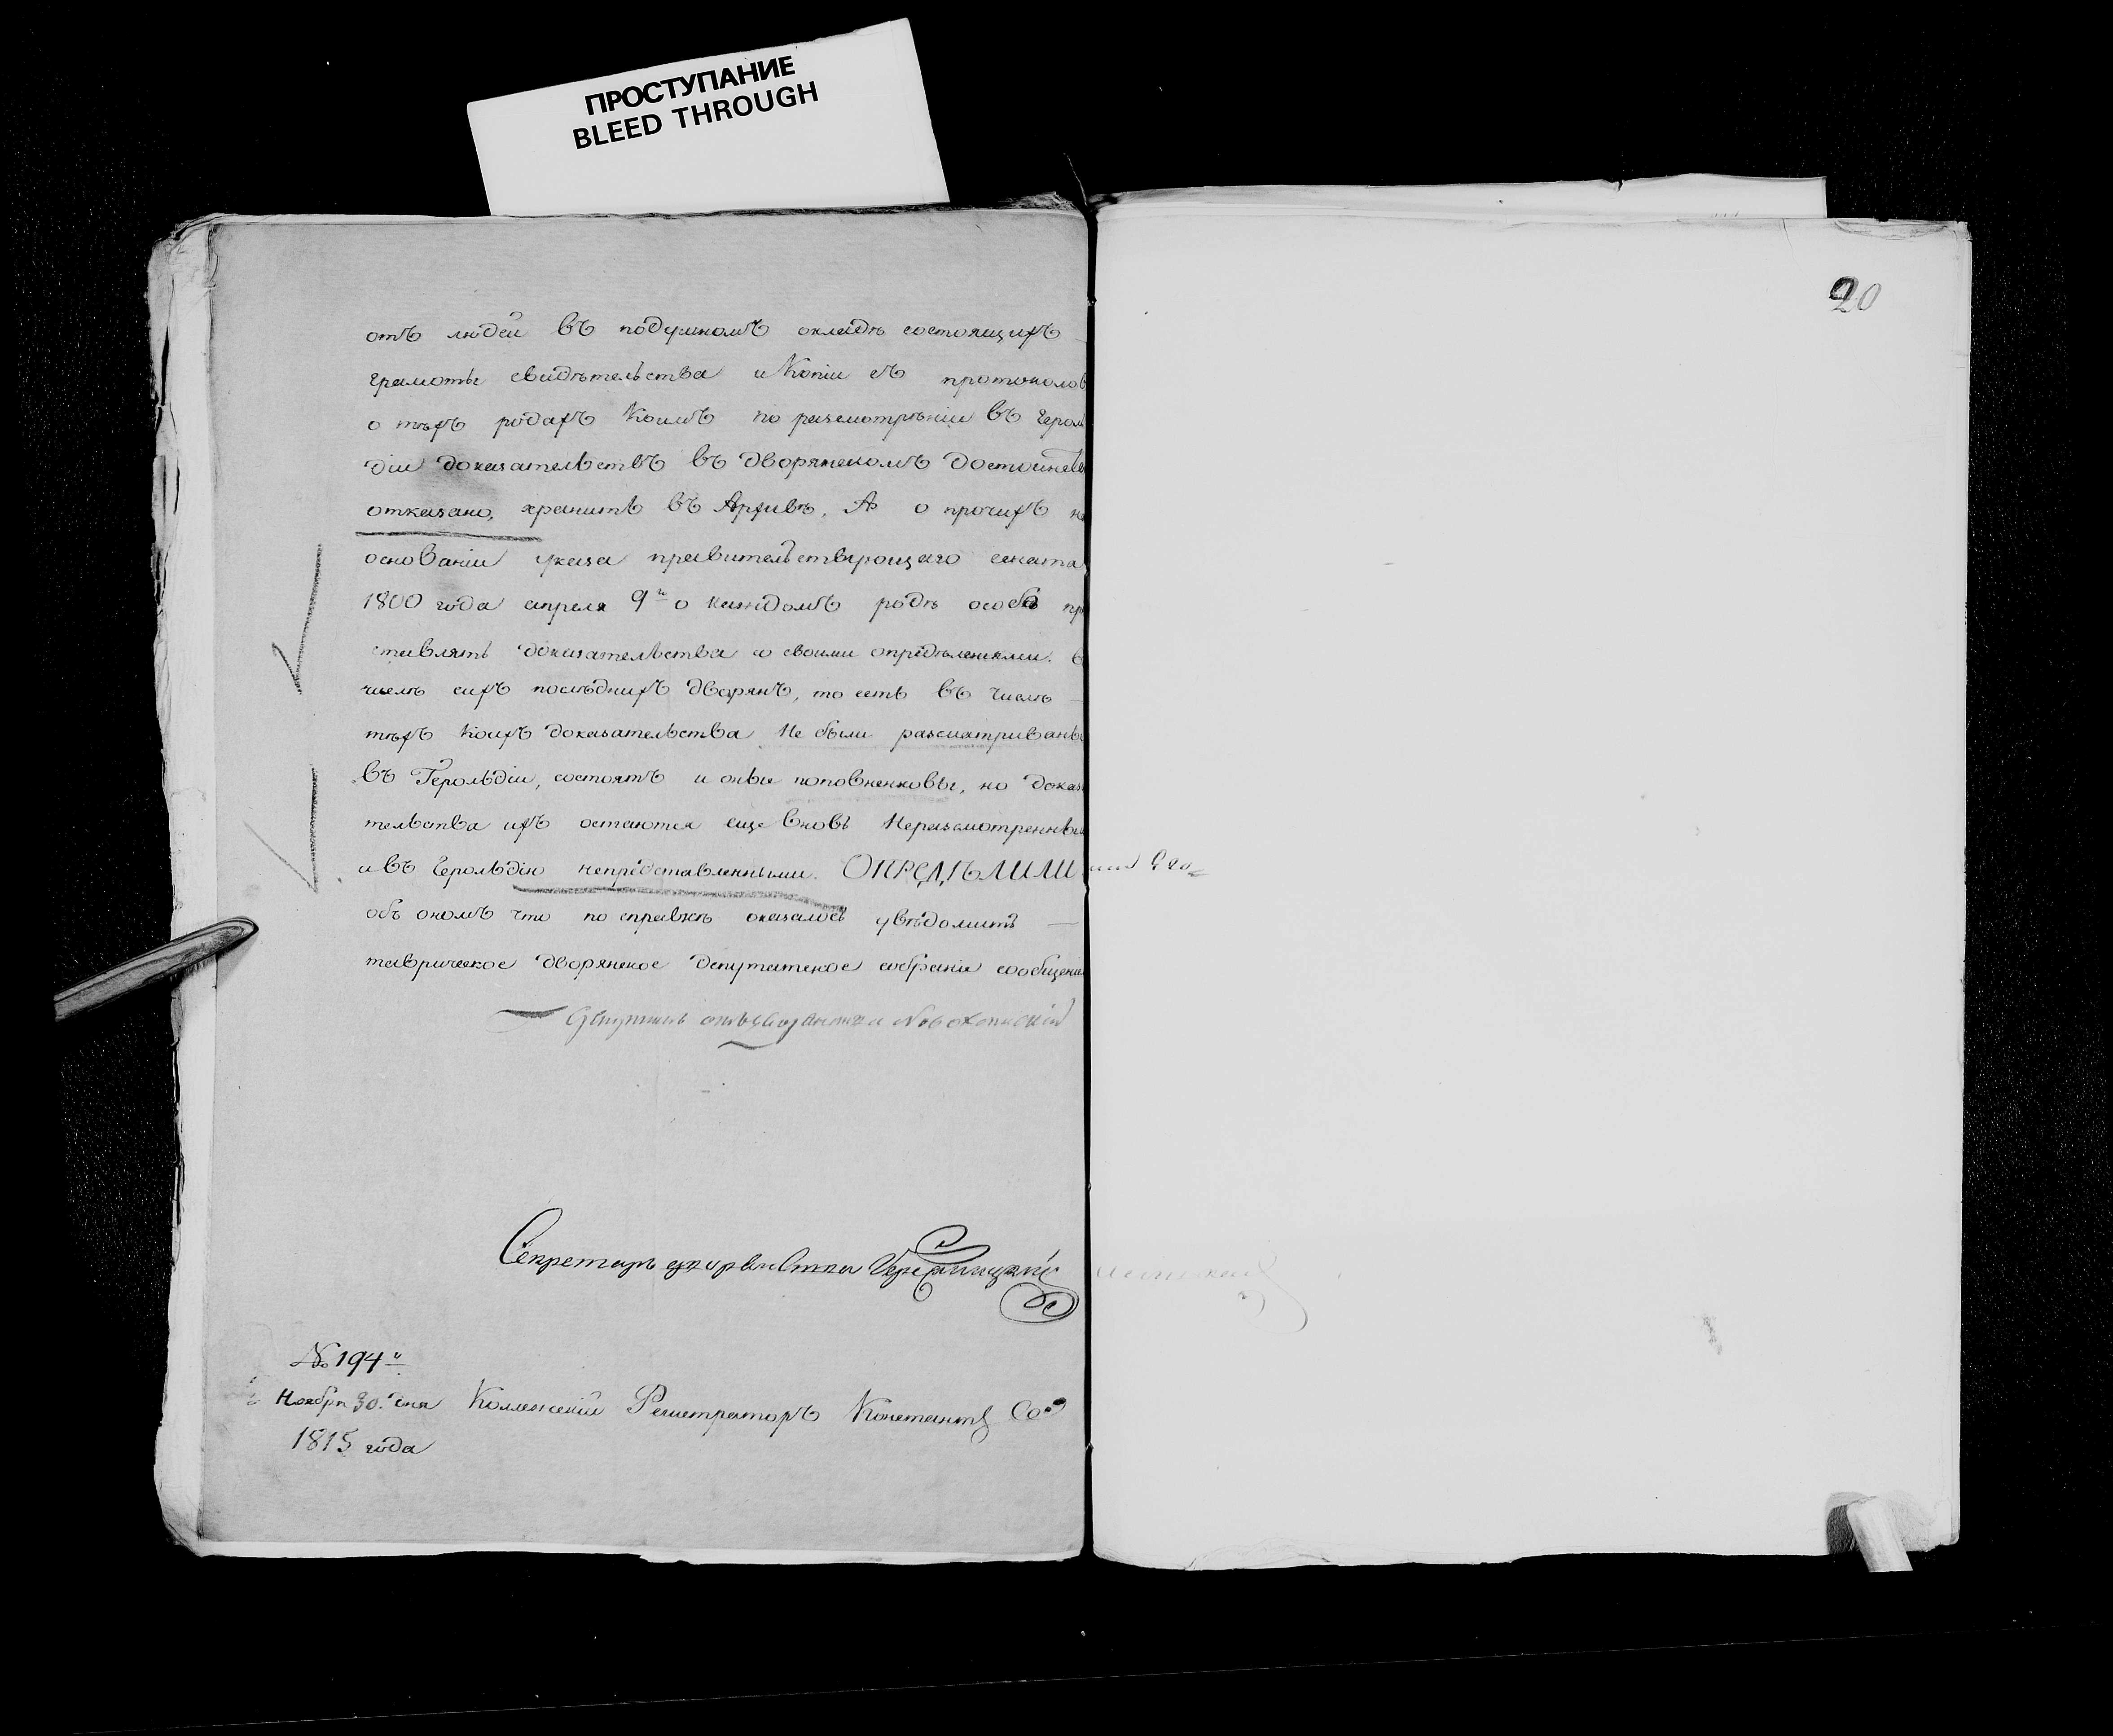 ПРОСТУПАНИЕ
BLEED THROUGH
20
отъ людей въ подушномъ окладѣ состоящихъ
грамоты свидѣтельства и Копіи съ протоколов
о тѣхъ родахъ Коимъ по разсмотрѣніи въ Герол
діи доказательствъ въ дворянскомъ достоинс
отказано, хранить въ Архивѣ, А о прочихъ на
основаніи указа правительствующаго сената
1800 года апреля 9го о каждомъ родѣ особо пр
ставлять доказательства со своими опредѣленіями. в
числѣ сихъ послѣднихъ дворянъ, то есть въ числѣ
тѣхъ коихъ доказательства Не были разсматриваны
въ Герольдіи, состоятъ и оные поповненковы, но доказ
тельства ихъ остаются еще вновь Неразсмотренны
и въ Герольдію непредставленными. ОПРЕДѢЛИЛИ
объ ономъ что по справкѣ оказалось увѣдомить —
таврическое дворянское депутатское собраніе сообщені
Секретарь дворянства
№ 194й
Ноября 30. дня Коллежскій Регистраторъ
1815 года